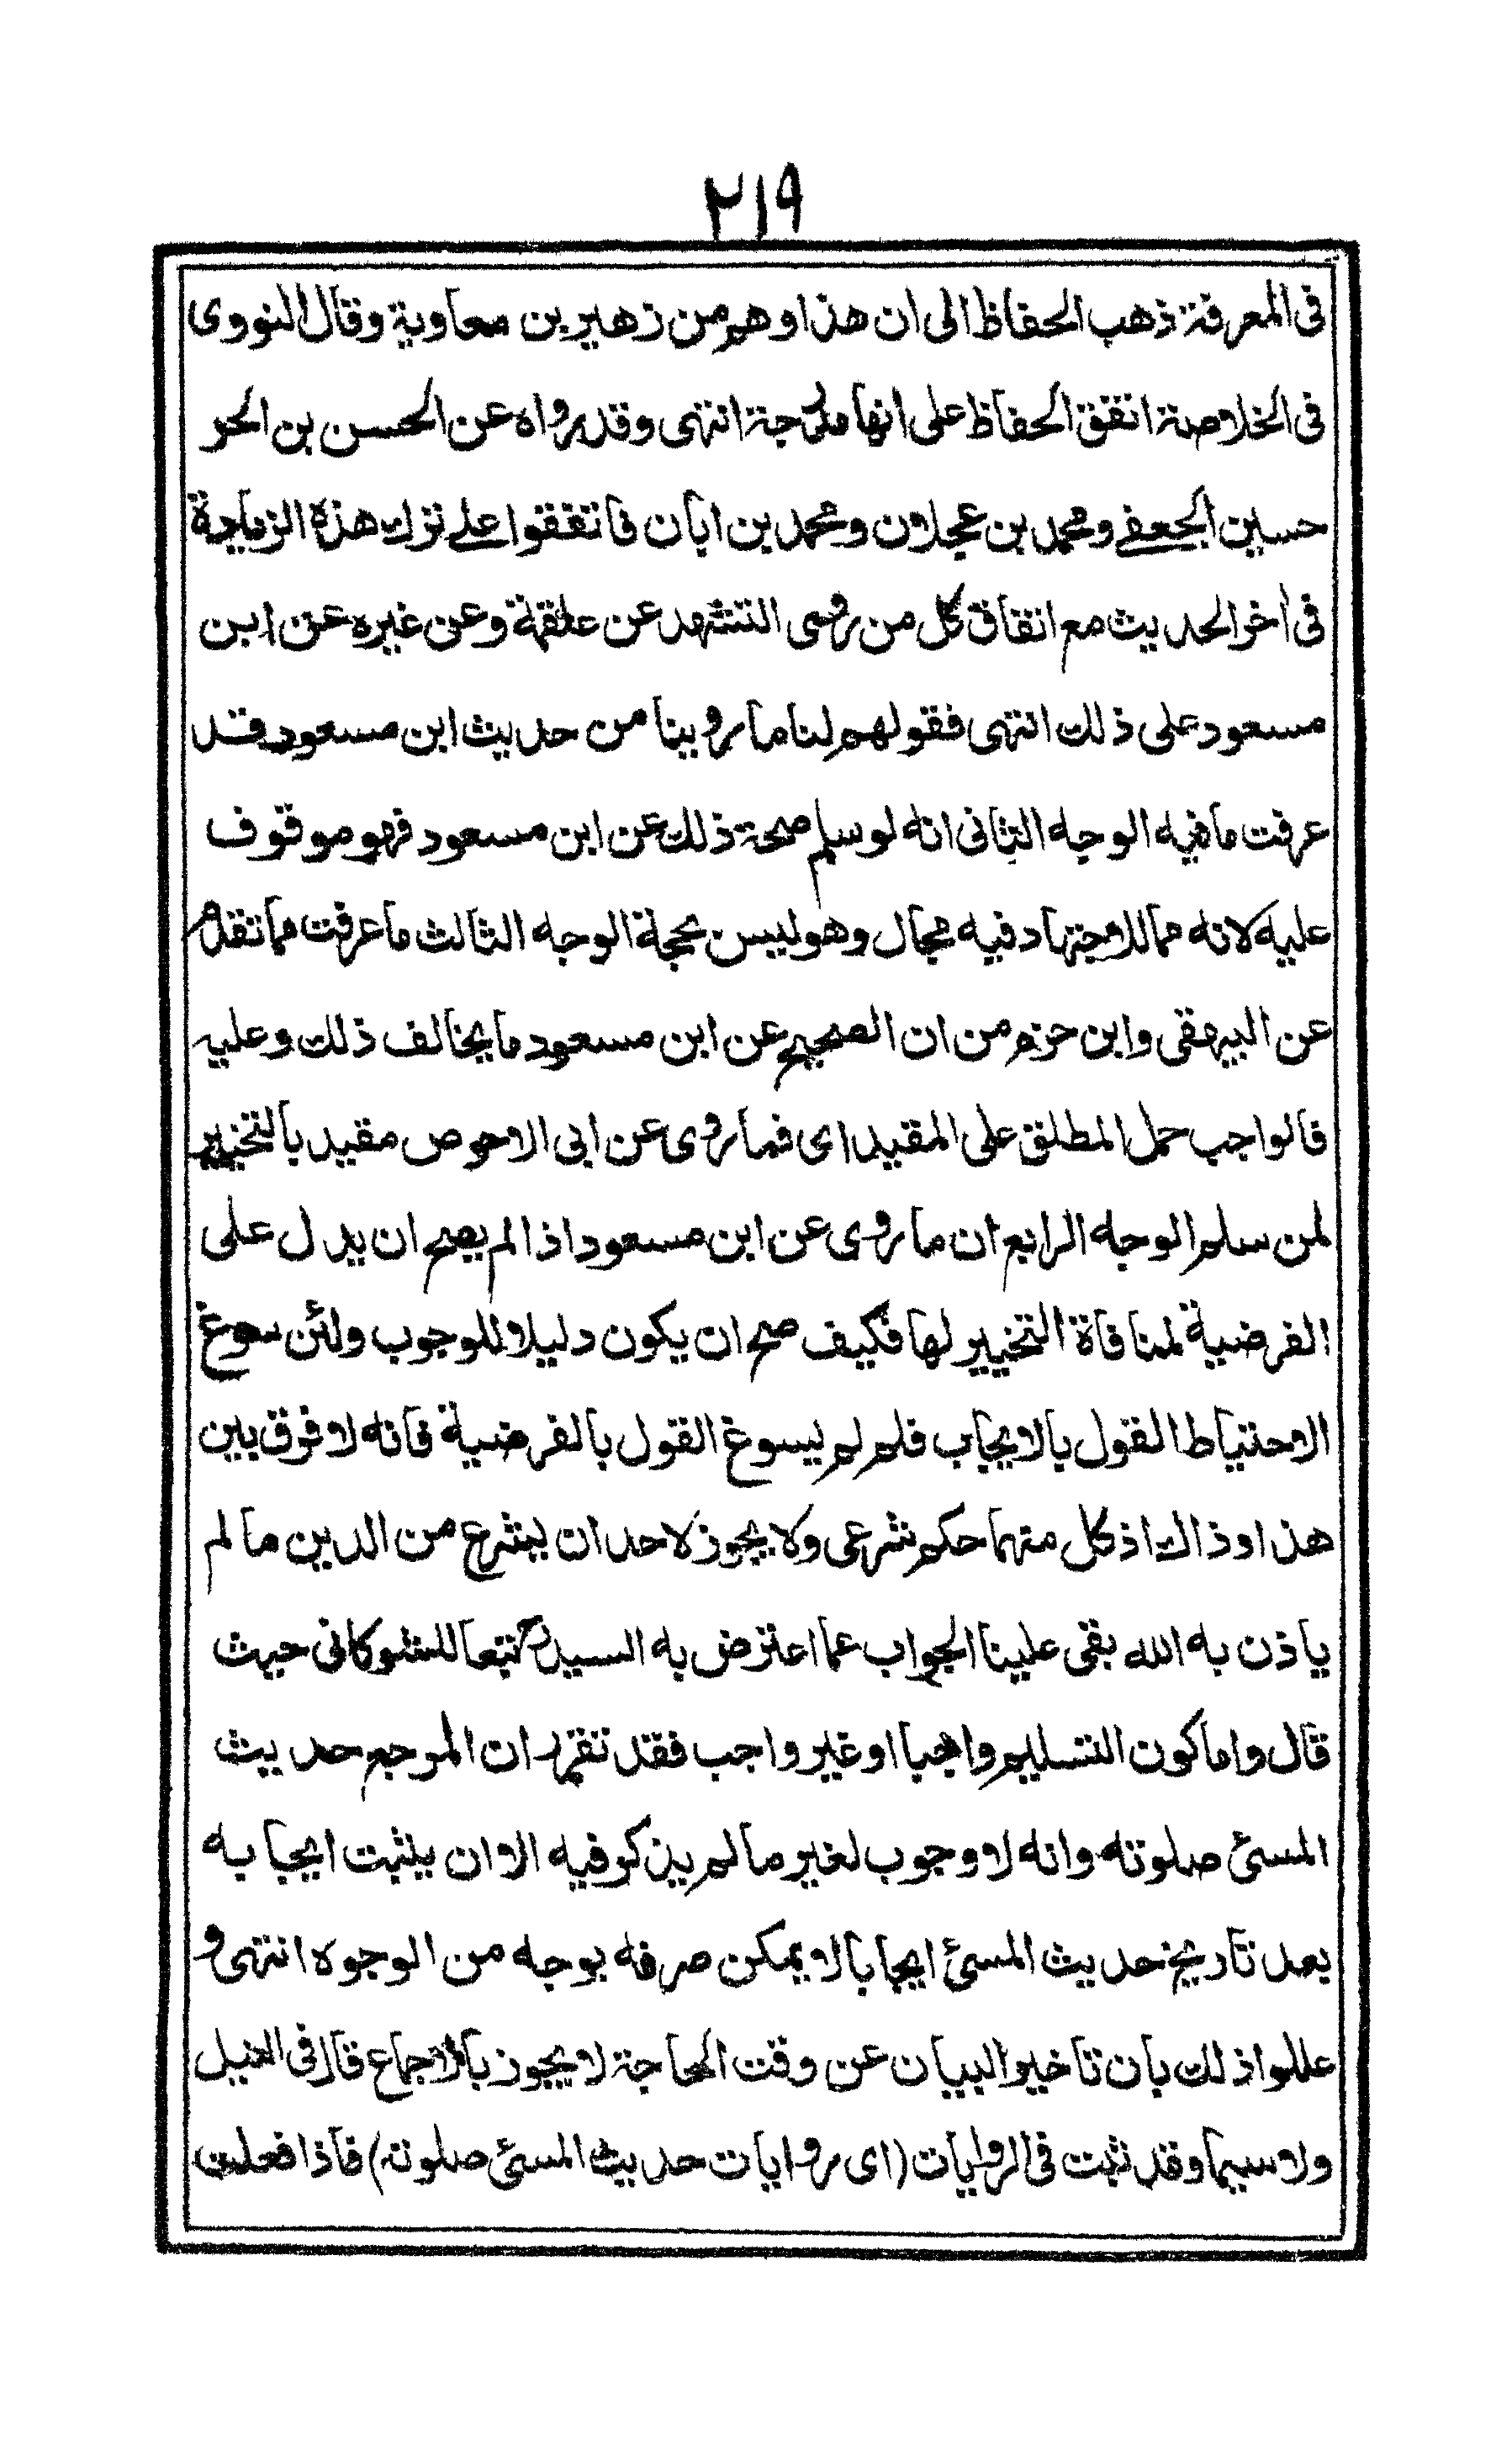 ٢١٩
فى المعرفة ذهب الحفاظ الى ان هذا وهم من زهير بن معاوية وقال النووى
فى الخلاصة اتفق الحفاظ على انها مدرجة انتهى وقد رواه عن الحسن بن الحر
حسين الجعفے ومحمد بن عجلان ومحمد بن ابان فاتفقوا علے ترك هذه الزيادة
فى أخر الحديث مع اتفاق كل من روى التشهد عن علقمة وعن غيره عن ابن
مسعود على ذلك انتهى فقولهم لنا ما روينا من حديث ابن مسعود قد
عرفت ما فيه الوجه الثانى انه لو سلم صحة ذلك عن ابن مسعود فهو موقوف
عليه لانه مما للاجتهاد فيه مجال وهو ليس بحجة الوجه الثالث ما عرفت مما تقدم
عن البيهقى وابن حزم من ان الصحيح عن ابن مسعود ما يخالف ذلك وعليه
فالواجب حمل المطلق على المقيد اى فما روى عن ابى الاحوص مقيد بالتخيير
لمن سلم الوجه الرابع ان ما روى عن ابن مسعود اذا لم يصح ان يدل على
الفرضية لمنافاة التخيير لها فكيف صح ان يكون دليلا للوجوب ولئن سوغ
الاحتياط القول بالايجاب فلم لم يسوغ القول بالفرضية فانه لا فرق بين
هذا وذاك اذ كل منهما حكم شرعى ولا يجوز لاحد ان يشرع من الدين ما لم
ياذن به الله بقى علينا الجواب عما اعترض به السيد رح تبعا للشوكانى حيث
قال واما كون التسليم واجبا او غير واجب فقد تقرر ان المرجع حديث
المسئ صلوته وانه لا وجوب لغير ما لم يذكر فيه الا ان يثبت ايجابه
بعد تاريخ حديث المسئ ايجابا لا يمكن صرفه بوجه من الوجوه انتهى و
عللوا ذلك بان تاخير البيان عن وقت الحاجة لا يجوز بالاجماع قال فى النيل
ولا سيما وقد ثبت فى الروايات (اى روايات حديث المسئ صلوته) فاذا فعلت